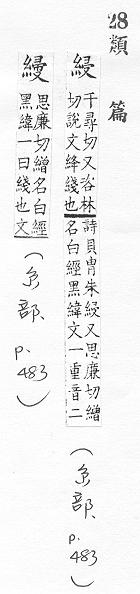 28 類篇
綅
千尋切又咨林
切說文絳綫也
詩貝冑朱綅又思廉切繒
名白經黑緯文一重音二
(糸部 p.483)
綅
思廉切繒名白經
黑緯一曰綫也文
(糸部 p.483)